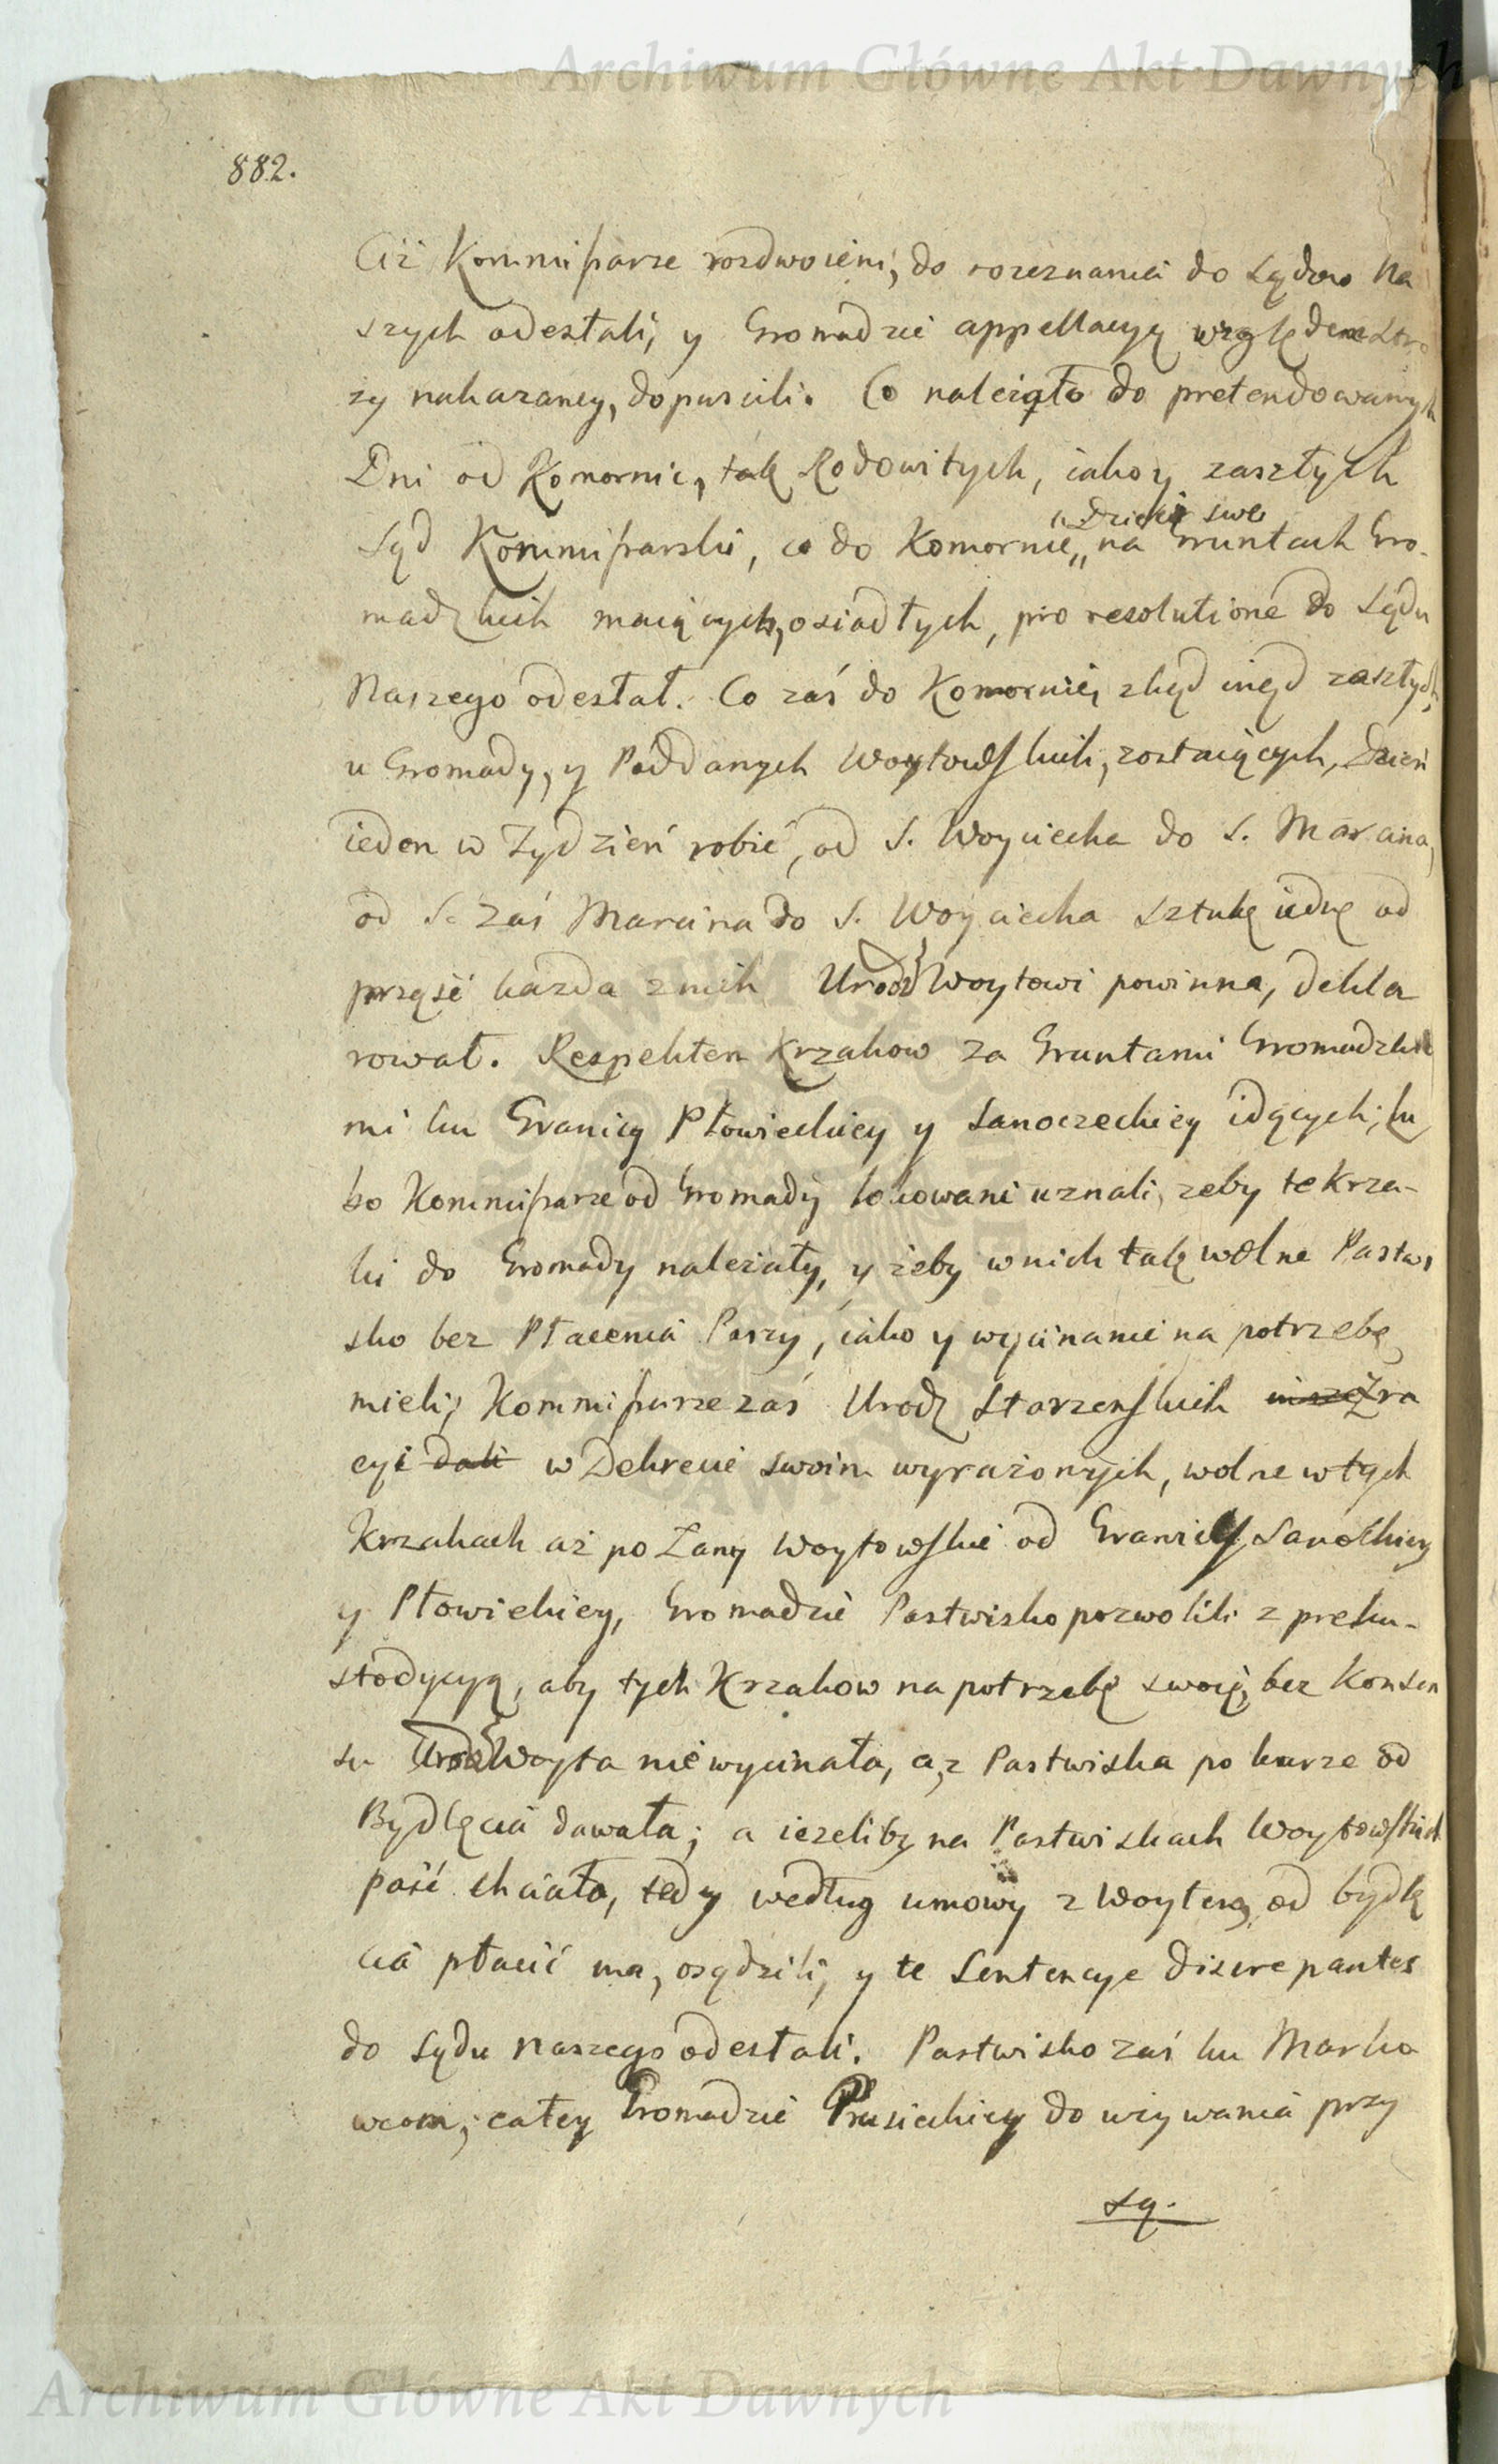 Archiwum Główne Akt Dawnych
882.
Ciż Kommißarze rozdwoieni, do rozeznania do Sądow Na
szych odesłali, y Gromadzie appellacyą względem Stro
ży nakazaney, dopuscili. Co należąło do pretendowanych
Dni od Komornic, tak Rodowitych, iako y zaszłych
Sąd Kommißarski, co do Komornic,, na Gruntach Gro-
,,Dzieci swe
madzkich maiących, osiadłych, pro resolutione do Sądu
Naszego odesłał. Co zaś do Komornic, zkąd inąd zaszłych,
u Gromady, y Poddanych Woytowskich, zostaiących, Dzień
ieden w Tydzień robić, od S. Woyciecha do S. Marcina,
od S. zaś Marcina do S. Woyciecha sztukę iednę od
prząść każda z nich Urodz Woytowi powinna, dekla
rował. Respektem Krzakow za Gruntami Gromadzkie
mi ku Granicy Płowieckiey y Sanoczeckiey idących; lu
bo Kommißarze od Gromady lokowani uznali, żeby te krza-
ki do Gromady należały, y żeby w nich tak wolne Pastwi
sko bez Płacenia Paszy, iako y wycinanie na potrzebę
mieli; Kommißarze zaś Urodz Starzenskich z ra
cyi dali w Dekrecie swoim wyrażonych, wolne w tych
Krzakach aż po Łany Woytowskie od Granicy Sanockiey
y Płowieckiey, Gromadzie Pastwisko pozwolili z preku-
stodycyą, aby tych Krzakow na potrzebę swoię, bez Konsen
su Urodz Woyta nie wycinała, a z Pastwiska po kurze od
Bydlęcia dawała; a ieżeliby na Pastwiskach Woytowskich
paść chciała, tedy według umowy z Woytem, od bydlę
cia płacić ma, osądzili, y te Sentencye discrepantes
do Sądu Naszego odesłali. Pastwisko zaś ku Marko
wcom, całey Gromadzie Prusieckiey do używania przy
są.
Archiwum Główne Akt Dawnych